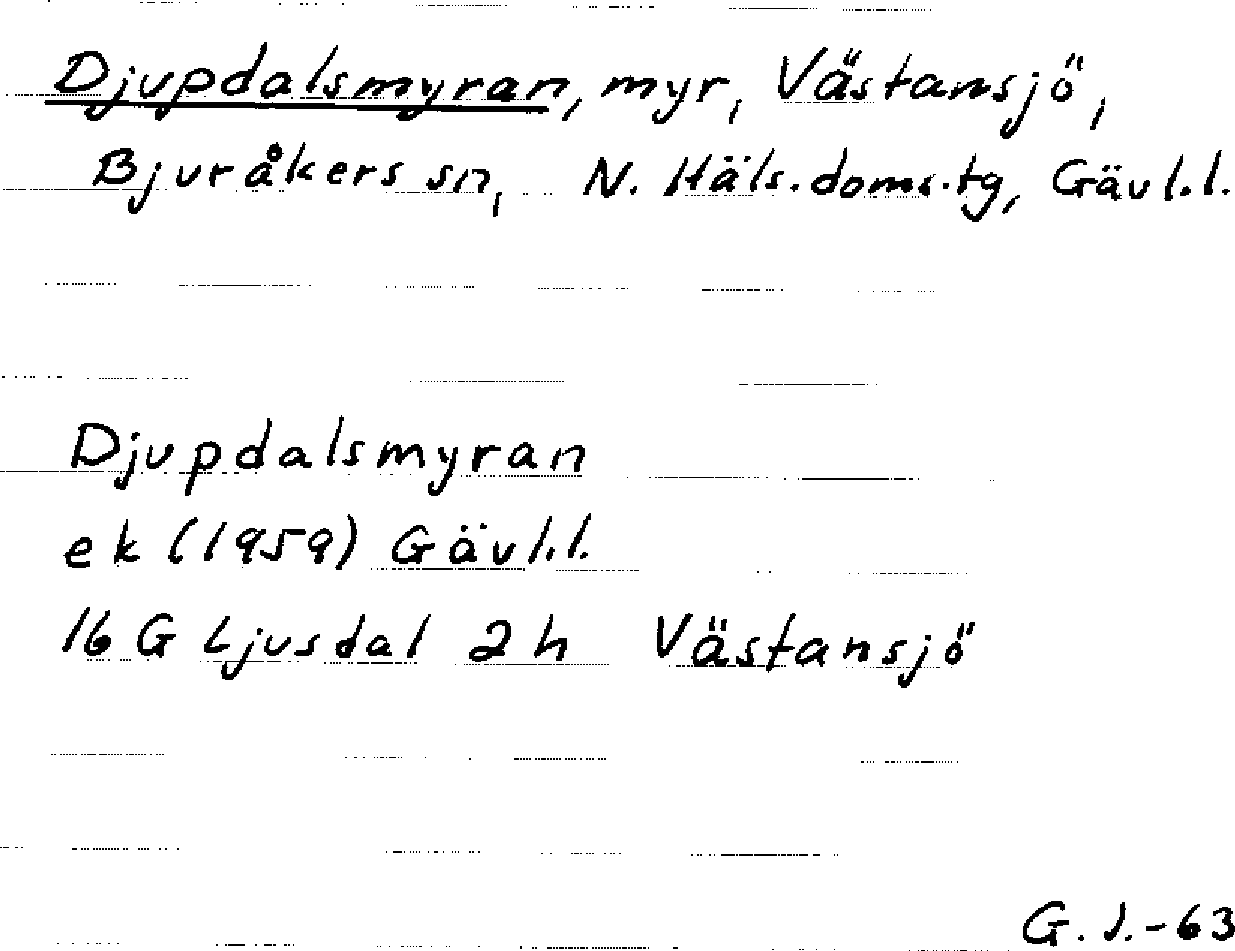 Djupdalsmyran, myr, Västansjö,
Bjuråkers sn, N. Häls. doms. tg, Gävl.l.
Djupdalsmyran
ek (1959) Gävl.l.
16 G Ljusdal 2h Västansjö
G. J. -63